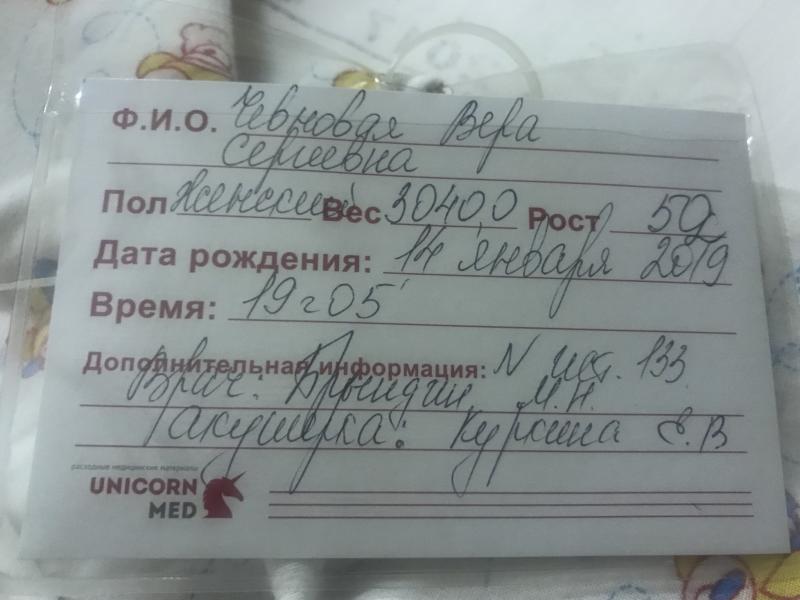 Ф.И.О. Чевновая Вера
Сергеевна
Пол Женский Вес 3040,0 Рост 50
Дата рождения: 14 января 2019
Время: 19 г 05'
Дополнительная информация: N ист. 133
Врач: Брындин М.Н.
Акушерка: Куркина Е.В
расходные медицинские материалы
UNICORN
MED